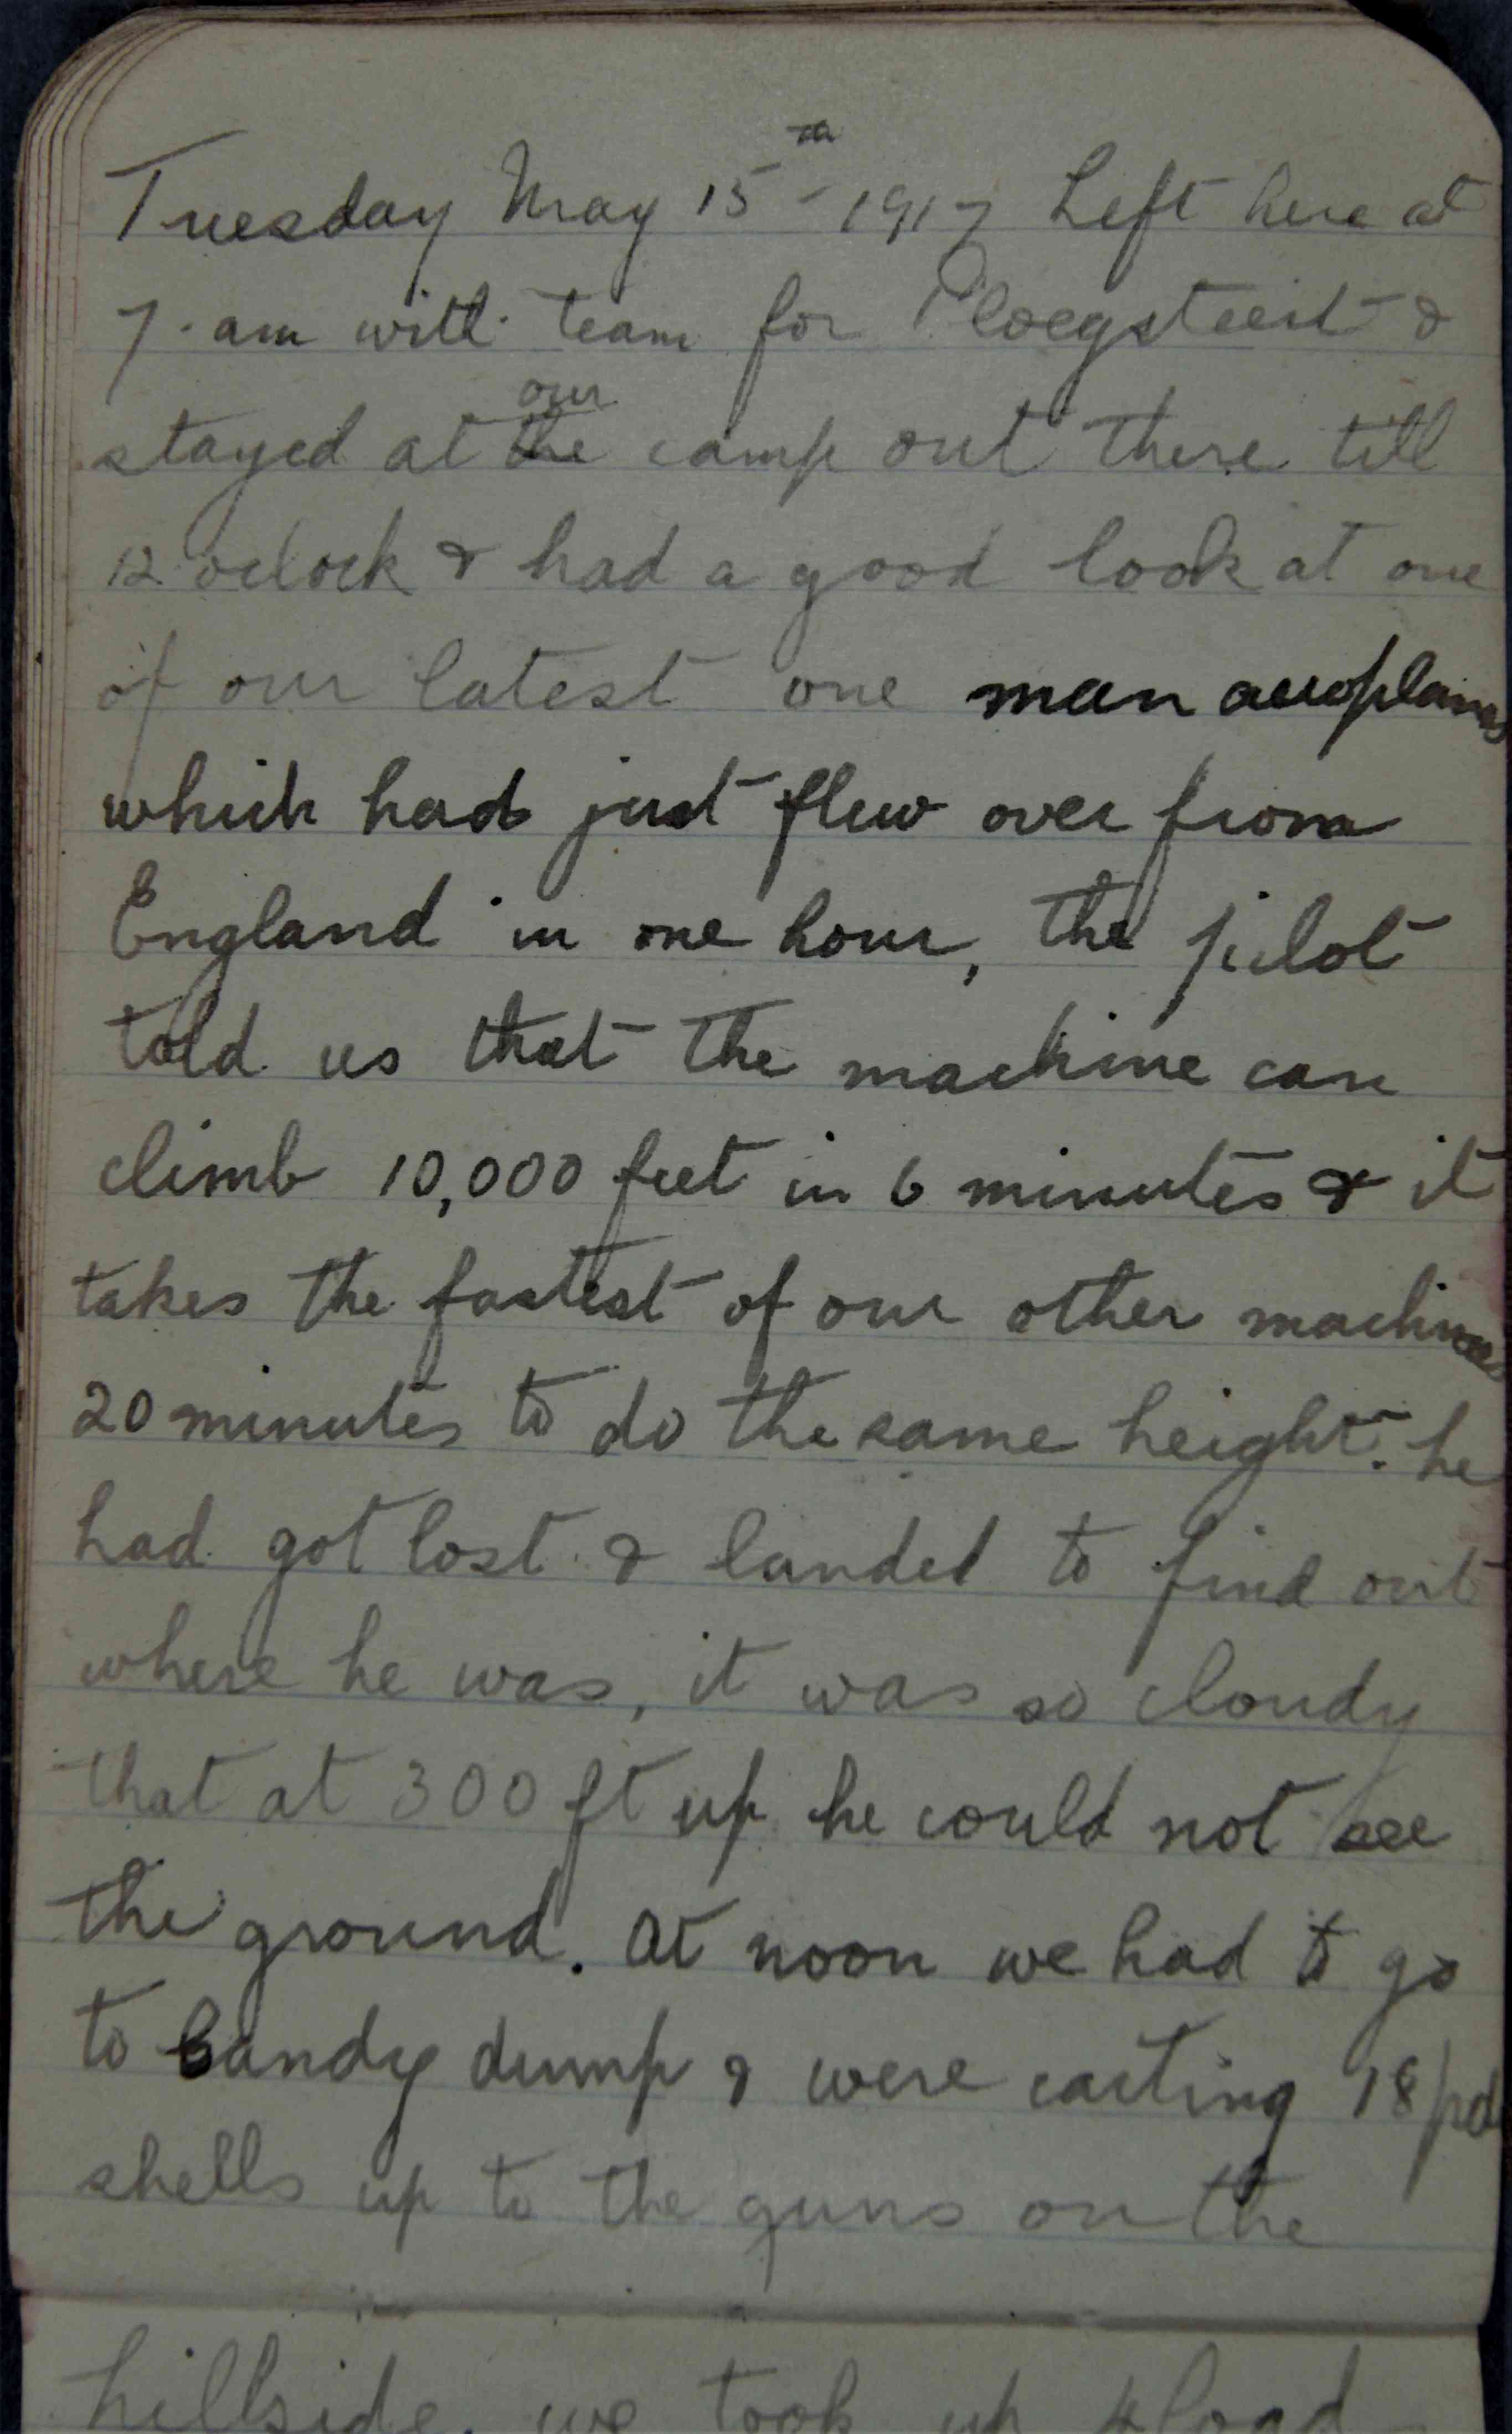 Tuesday May 15th 1917 Left here at
7.am with team for Ploegsteert &
our
stayed at the camp out there till
12 oclock & had a good look at one
of our latest one man aeroplanes
which had just flew over from
England in one hour, the pilot
told us that the machine can
climb 10,000 feet in 6 minutes & it
takes the fastest of our other machines
20 minutes to do the same height. he
had got lost & landed to find out
where he was, it was so cloudy
that at 300 ft up he could not see
the ground. At noon we had to go
to dump & were carting 18 pd
shells up to the guns on the
hillside, we took up 4 load